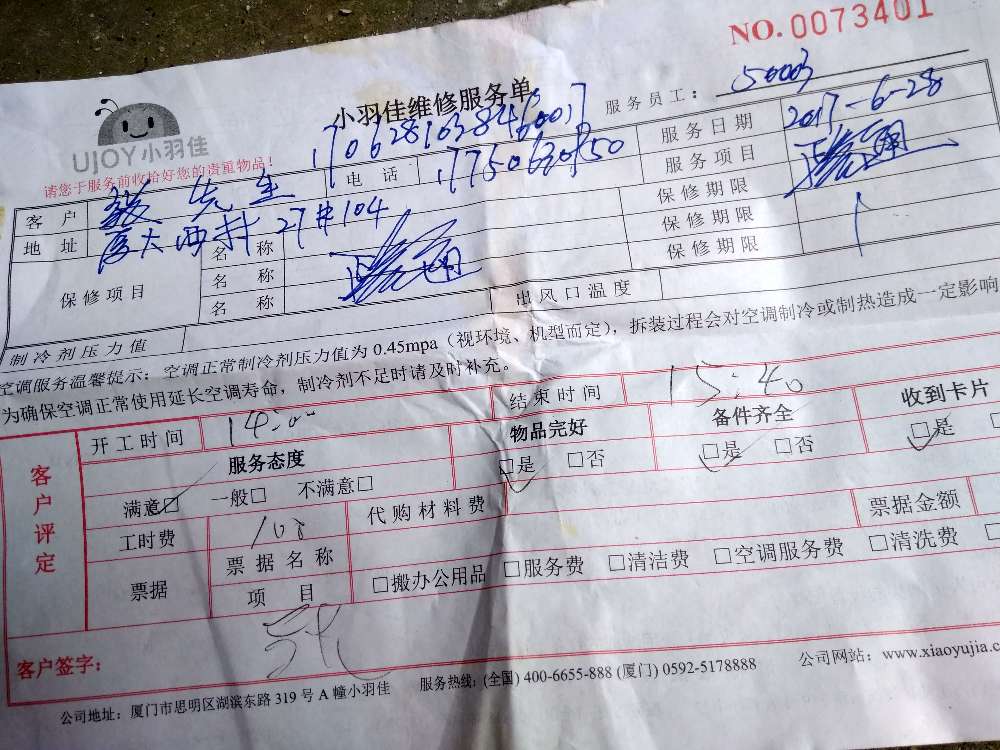 NO. 0073401
UJOY小羽佳
小羽佳维修服务单
服务员工： 50003
请您于服务前收拾好您的贵重物品！
客户 先生 电话 服务日期 2017-6-28
地址 厦大西村27#104 服务项目
保修项目 名称 保修期限
名称 保修期限
名称 保修期限
制冷剂压力值 出风口温度
空调服务温馨提示：空调正常制冷剂压力值为 0.45mpa（视环境、机型而定），拆装过程会对空调制冷或制热造成一定影响
为确保空调正常使用延长空调寿命，制冷剂不足时请及时补充。
客户评定 开工时间 14:00 结束时间 15:40
服务态度 物品完好 备件齐全 收到卡片
满意□ 一般□ 不满意□ □是 □否 □是 □否 □是
工时费 108 代购材料费 票据金额
票据 票据名称
项目 □搬办公用品 □服务费 □清洁费 □空调服务费 □清洗费
客户签字：
公司地址：厦门市思明区湖滨东路 319 号 A 幢小羽佳 服务热线：(全国) 400-6655-888 (厦门) 0592-5178888 公司网站：www.xiaoyujia.c